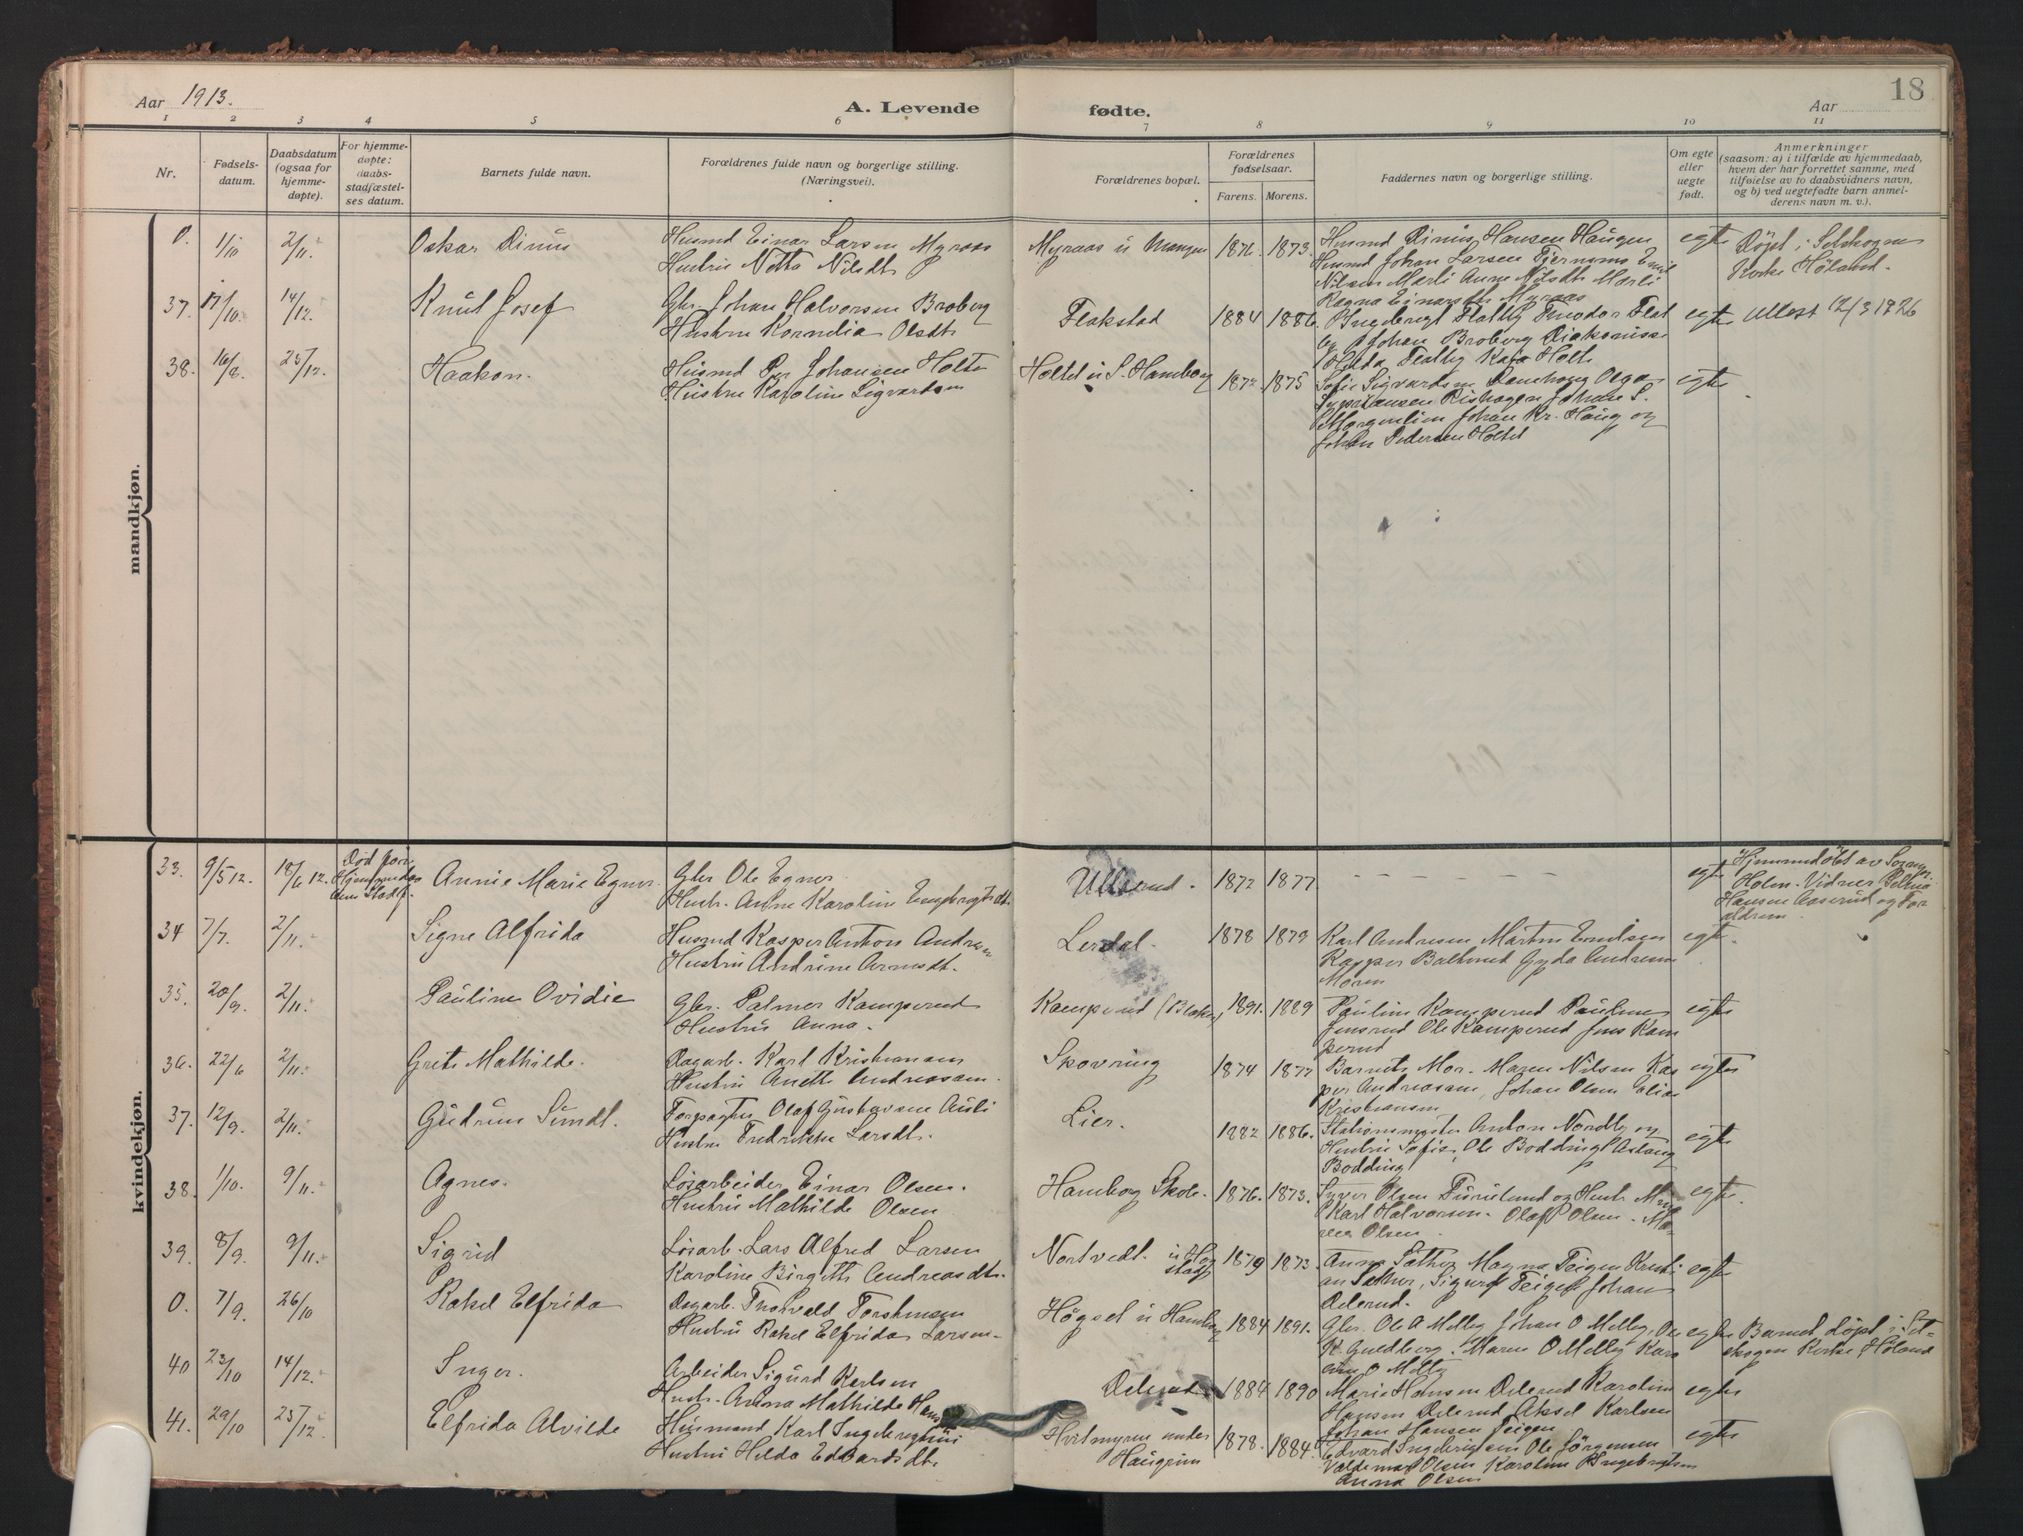 Aar 1913. A. Levende fødte. Aar 18
1 2 3 4 5 6 7 8 9 10 11
Nr.
Fødsels-
datum.
Daabsdatum
(ogsaa for
hjemme-
døpte).
For hjemme-
døpte:
daabs-
stadfæstel-
ses datum.
Barnets fulde navn.
Forældrenes fulde navn og borgerlige stilling.
(Næringsvei).
Forældrenes bopæl.
Forældrenes
fødselsaar.
Farens. Morens.
Faddernes navn og borgerlige stilling.
Om egte
eller
uegte
født.
Anmerkninger
(saasom: a) i tilfælde av hjemmedaab,
hvem der har forrettet samme, med
tilføielse av to daabsvidners navn,
og b) ved uegtefødte barn anmel-
derens navn m. v.).
mandkjøn.
0. 1/10 2/11. Oskar Dinus
Husmd Einar Larsen Myraas
Hustru Netta Nilsdt.
Myraas u Mangen 1873.
Husmd Dinus Hansen Haugen
Husmd Johan Larsen
Nilsen Marli Anne Nilsdt. Marli
Ragna Einarsdtr Myraas
egte Døpt i Setskogen
Kirke Høland.
37. 17/10. 14/12. Knut Josef
Gbr. Johan Halvorsen Broberg
Hustru Kornelia Olsdt.
Flakstad 1884 1886.
Ingebregt Flatby Teodor Flat
by Johan Broberg Diakonisse
Hilda Flatby Kaja Holt.
egte Utlest 12/3 1926
38. 16/8. 25/12. Haakon.
Husmd Per Johansen Holte
Hustru Karoline Sigvardsen
Holtet u S. Hamborg 1872. 1875
Sofie Sigvardsen Olga
Rishagen Johan S.
Johan Kr. Haug og
Johan Pedersen Holtet
egte
kvindekjøn.
33. 9/5 12. 18/6 12. Død før
Hjemmedaa
ben Stadf.
Annie Marie Egner.
Gbr Ole Egner.
Hustr. Anne Karoline Engebregtsdt.
Ullerud. 1872 1877. – – – – – –
egte Hjemmedöbt av
Holen. Vidner
Hansen Aaserud og For
ældren.
34 7/7. 2/11. Signe Alfrida
Husmd Kasper Anton Andresen
Hustru Andrine Arnesdt.
Lerdal. 1878 1879
Karl Andresen Martin Emilsen
Kasper Gyda Andresen
Moren
egte.
35. 20/9. 2/11. Pauline Ovidie
Gbr. Palmer Kamperud
Hustru Anna.
Kamperud 1891. 1889
Paulin Kamperud Pauline
Jensrud Ole Kamperud Jens Kam
perud
egte
36. 22/6 2/11. Grete Mathilde.
Dagarb. Karl Kristiansen
Hustru Anette Andreasen.
Skovring 1874 1877
Barnets Mor. Maren Nilsen Kas
per Andreasen, Johan Olsen
Kristiansen
egte
37. 12/9. 2/11. Gudrun Sundt.
Forpagter Olaf Gustavsen Auli
Hustru Fredrikke Larsdt.
Lier. 1882 1886.
Stationsmester Anton Nordby og
Hustru Sofie, Ole Bodding Aslaug
Bodding
egte
38. 1/10. 9/11. Agnes.
Løsarbeider Einar Olsen.
Hustru Mathilde Olsen
Hamborg Skole. 1876. 1873.
Syver Olsen og Hustr.
Karl Halvorsen. Olaf Olsen. Ma-
ren Olsen.
egte.
39. 8/9. 9/11. Sigrid
Løsarb. Lars Alfred Larsen
Karoline Birgitte Andreasdt.
Nortvedt. 1879 1873.
Anne Sæther Magna Teigen Kristi
an Sæther, Sigurd Teigen Johan
Delerud.
egte
0. 7/9. 26/10 Rakel Elfrida
Dagarb. Thorvald Torstensen
Hustru Rakel Elfrida Larsen.
Høgsel u Hamborg 1884 1891.
Gbr. Ole A Melby Johan O Melby, Ole
K. Guldberg. Maren O Melby Karo
line O Melby
egte Barnet Døpt i Set-
skogen Kirke, Høland
40 23/10 14/12. Inger.
Arbeider Sigurd Karlsen
Hustr. Anna Mathilde Hans
Delerud 1884 1890
Marie Hansen Delerud Karoline
Hansen Delerud Aksel Karlsen
Johan Hansen Teigen
egte
41. 29/10 25/12. Elfrida Alvilde
Husmand Karl Ingebregtsen
Hustru Hilda Edvardsdt.
Hvitmyren under
Haugrim
1878. 1884.
Edvard Ingebrigtsen Ole Jørgensen
Valdemar Olsen Karoline Ingebrigtsen
Anna Olsen
egte